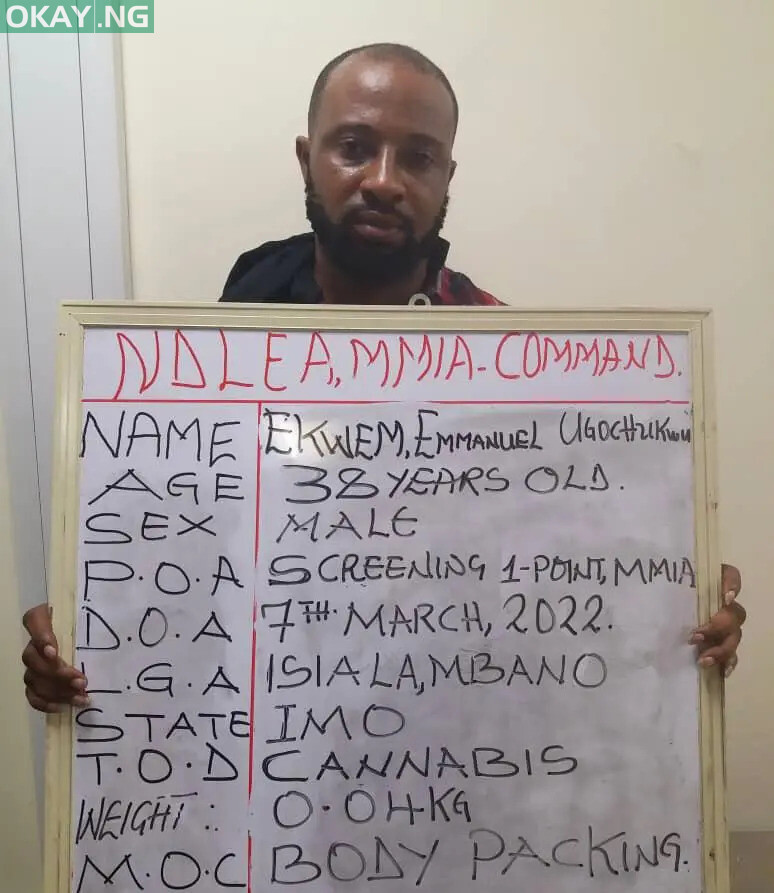 OKAY.NG
NDLEA, MMIA-COMMAND.
NAME EKWEM, EMMANUEL UGOCHUKWU
AGE 38 YEARS OLD.
SEX MALE
P.O.A SCREENING 1-POINT, MMIA
D.O.A 7TH. MARCH, 2022.
L.G.A ISIALA, MBANO
STATE IMO
T.O.D CANNABIS
WEIGHT: 0.04KG
M.O.C BODY PACKING.